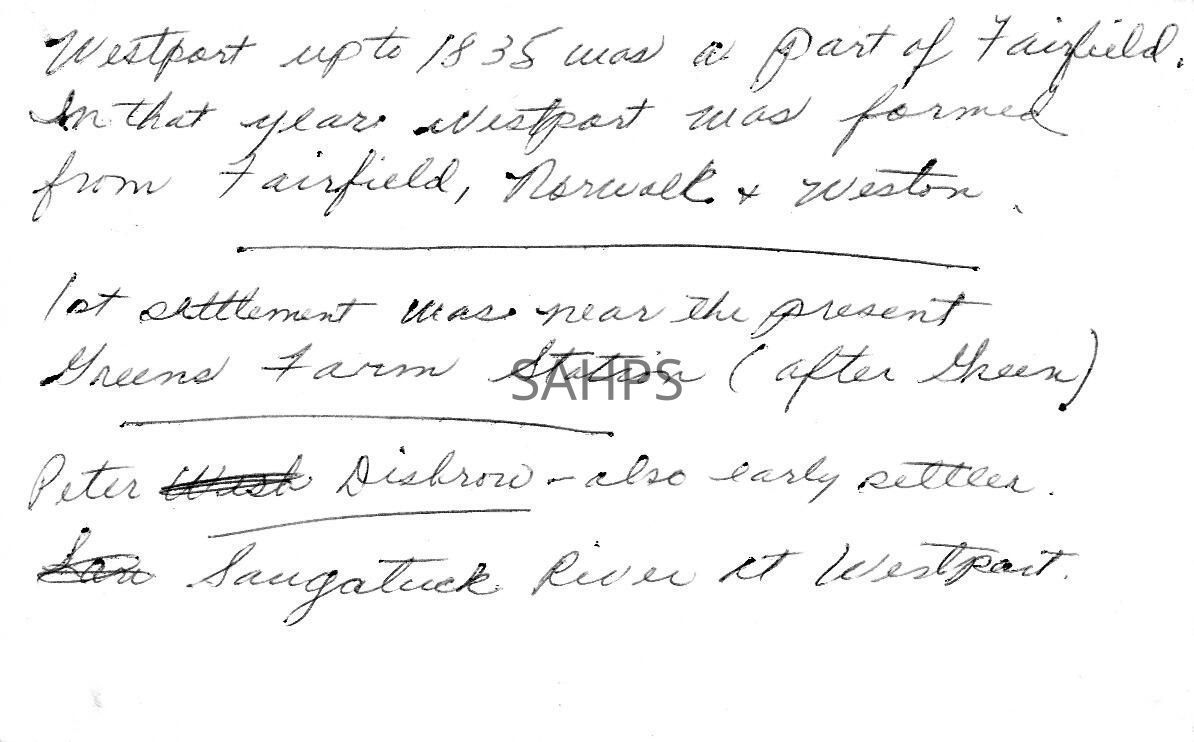 Westport up to 1835 was a part of Fairfield.
In that year Westport was formed
from Fairfield, Norwalk + Weston.
1st settlement was near the present
Greens Farm Station (after Green)
SAHPS
Peter Wash Disbrow - also early settler.
Sau Saugatuck River at Westport.